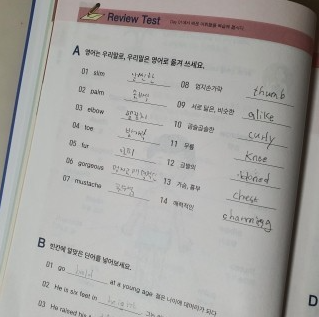 Review Test
A 영어는 우리말로, 우리말은 영어로 옮겨 쓰세요.
01 slim 날씬한
02 palm 손바닥
03 elbow 팔꿈치
04 toe 발가락
05 fur 모피
06 gorgeous
07 mustache 콧수염
08 엄지손가락 thumb
09 서로 닮은, 비슷한 alike
10 곱슬곱슬한 curly
11 무릎 knee
12 금발의
13 가슴, 흉부 chest
14 매력적인 charming
B 빈칸에 알맞은 단어를 넣어보세요.
01 go bald at a young age 젊은 나이에 대머리가 되다
02 He is six feet in height
03 He raised his
D